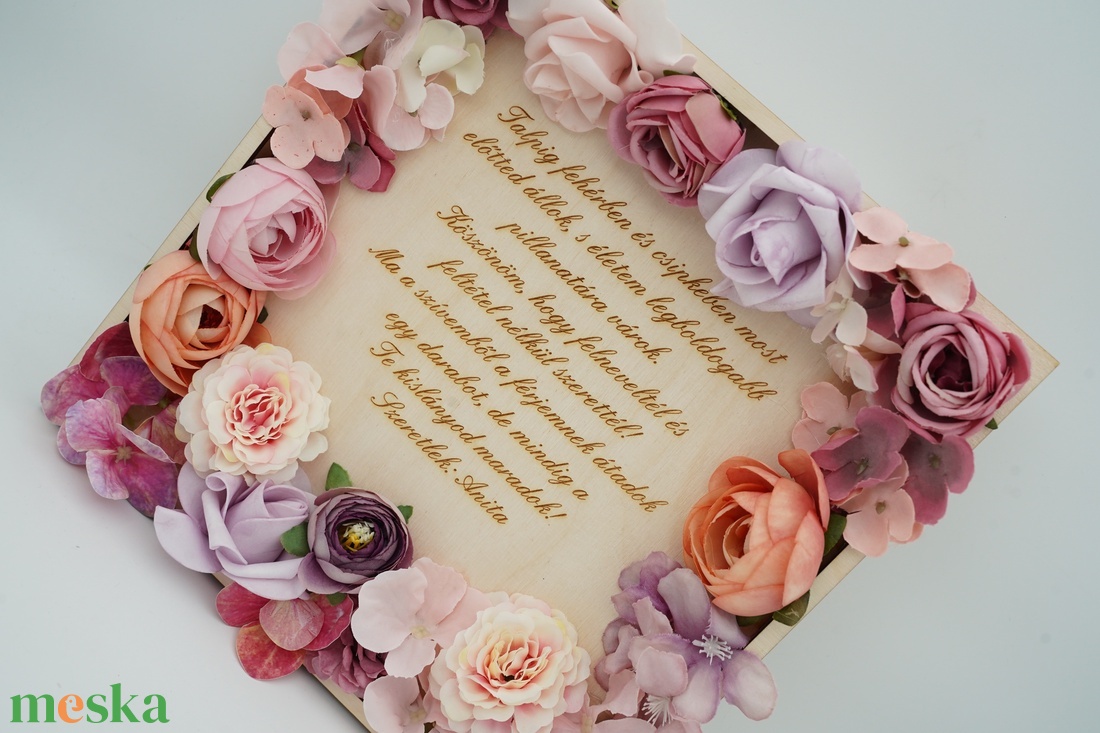 Talpig fehérben és csipkében most
előtted állok, s életem legboldogabb
pillanatára várok.
Köszönöm, hogy felneveltél és
feltétel nélkül szerettél!
Ma a szívemből a férjemnek átadok
egy darabot, de mindig a
Te kislányod maradok!
Szeretlek: Anita
meska